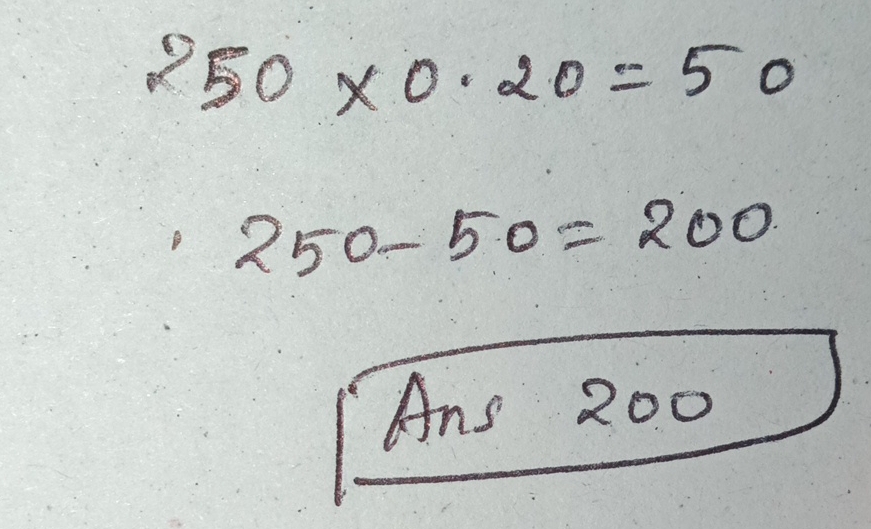 250 × 0.20 = 50
250 - 50 = 200
Ans 200